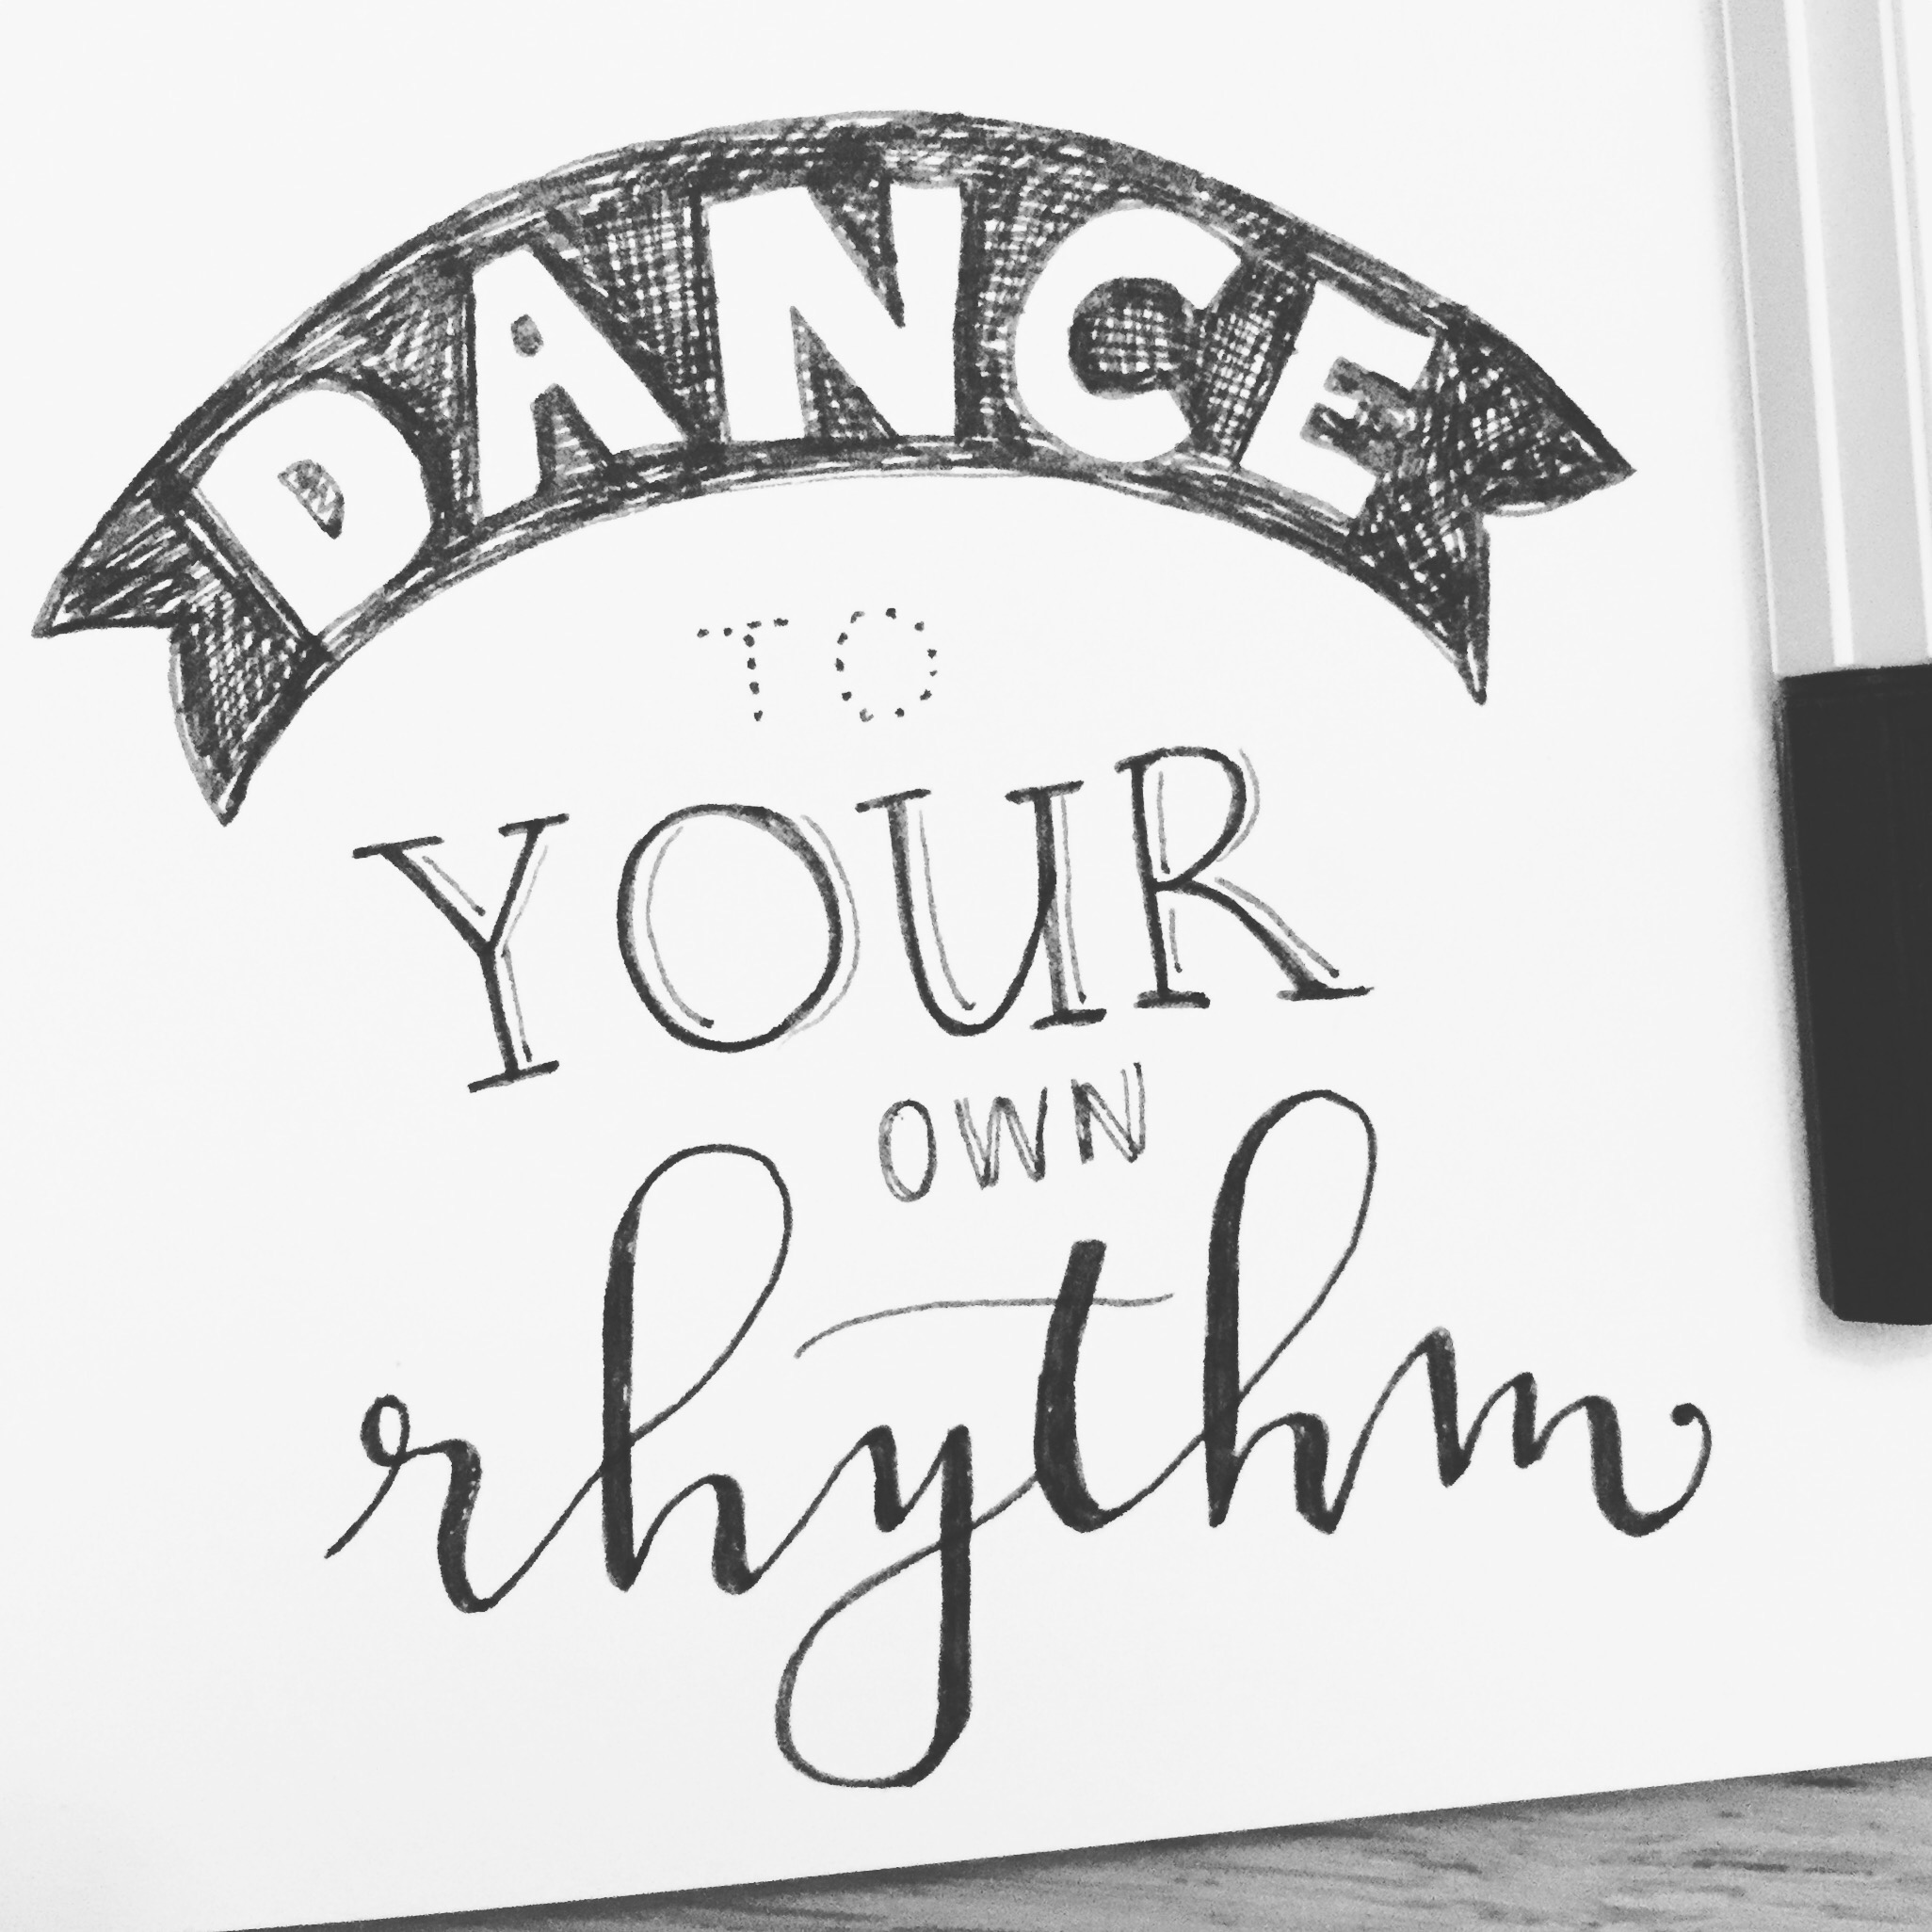 DANCE
TO
YOUR
OWN
rhythm